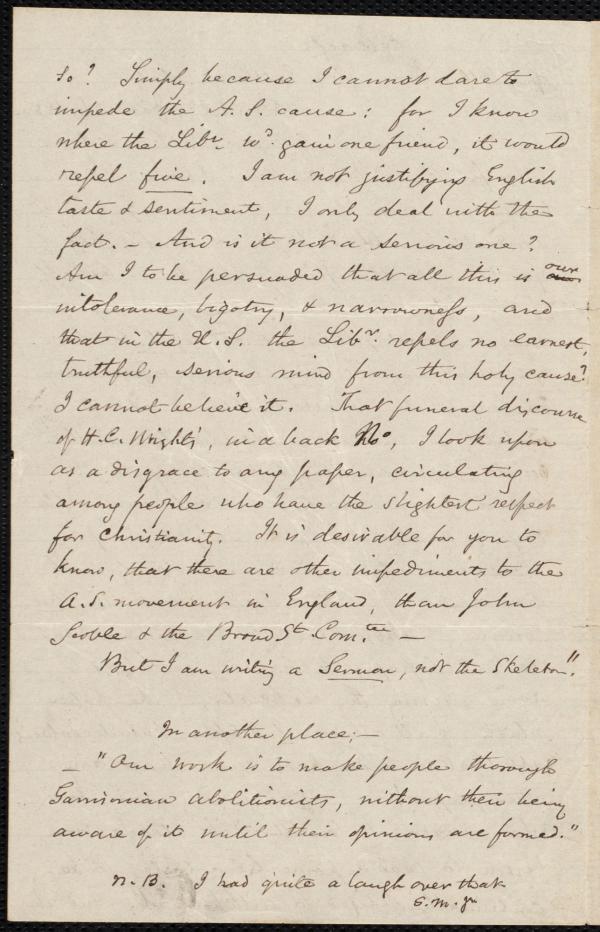 so? Simply because I cannot dare to
impede the A. S. cause: for I know
where the Libr. wd. gain one friend, it would
repel five. I am not justifying English
taste & sentiment, I only deal with the
fact. – And is it not a serious one?
Am I to be persuaded that all this is our
intolerance, bigotry, & narrowness, and
that in the U.S. the Libr. repels no earnest,
truthful, serious mind from this holy cause?
I cannot believe it. That funeral discourse
of H. C. Wright's, in a back No., I look upon
as a disgrace to any paper, circulating
among people who have the slightest respect
for Christianity. It is desirable for you to
know, that there are other impediments to the
A. S. movement in England, than John
Scoble & the Broad St. Comtee. –
But I am writing a Sermon, not the Skeleton."
In another place: –
– "Our work is to make people thorough
Garrisonian abolitionists, without their being
aware of it until their opinions are formed."
N. B. I had quite a laugh over that
S. M. yr